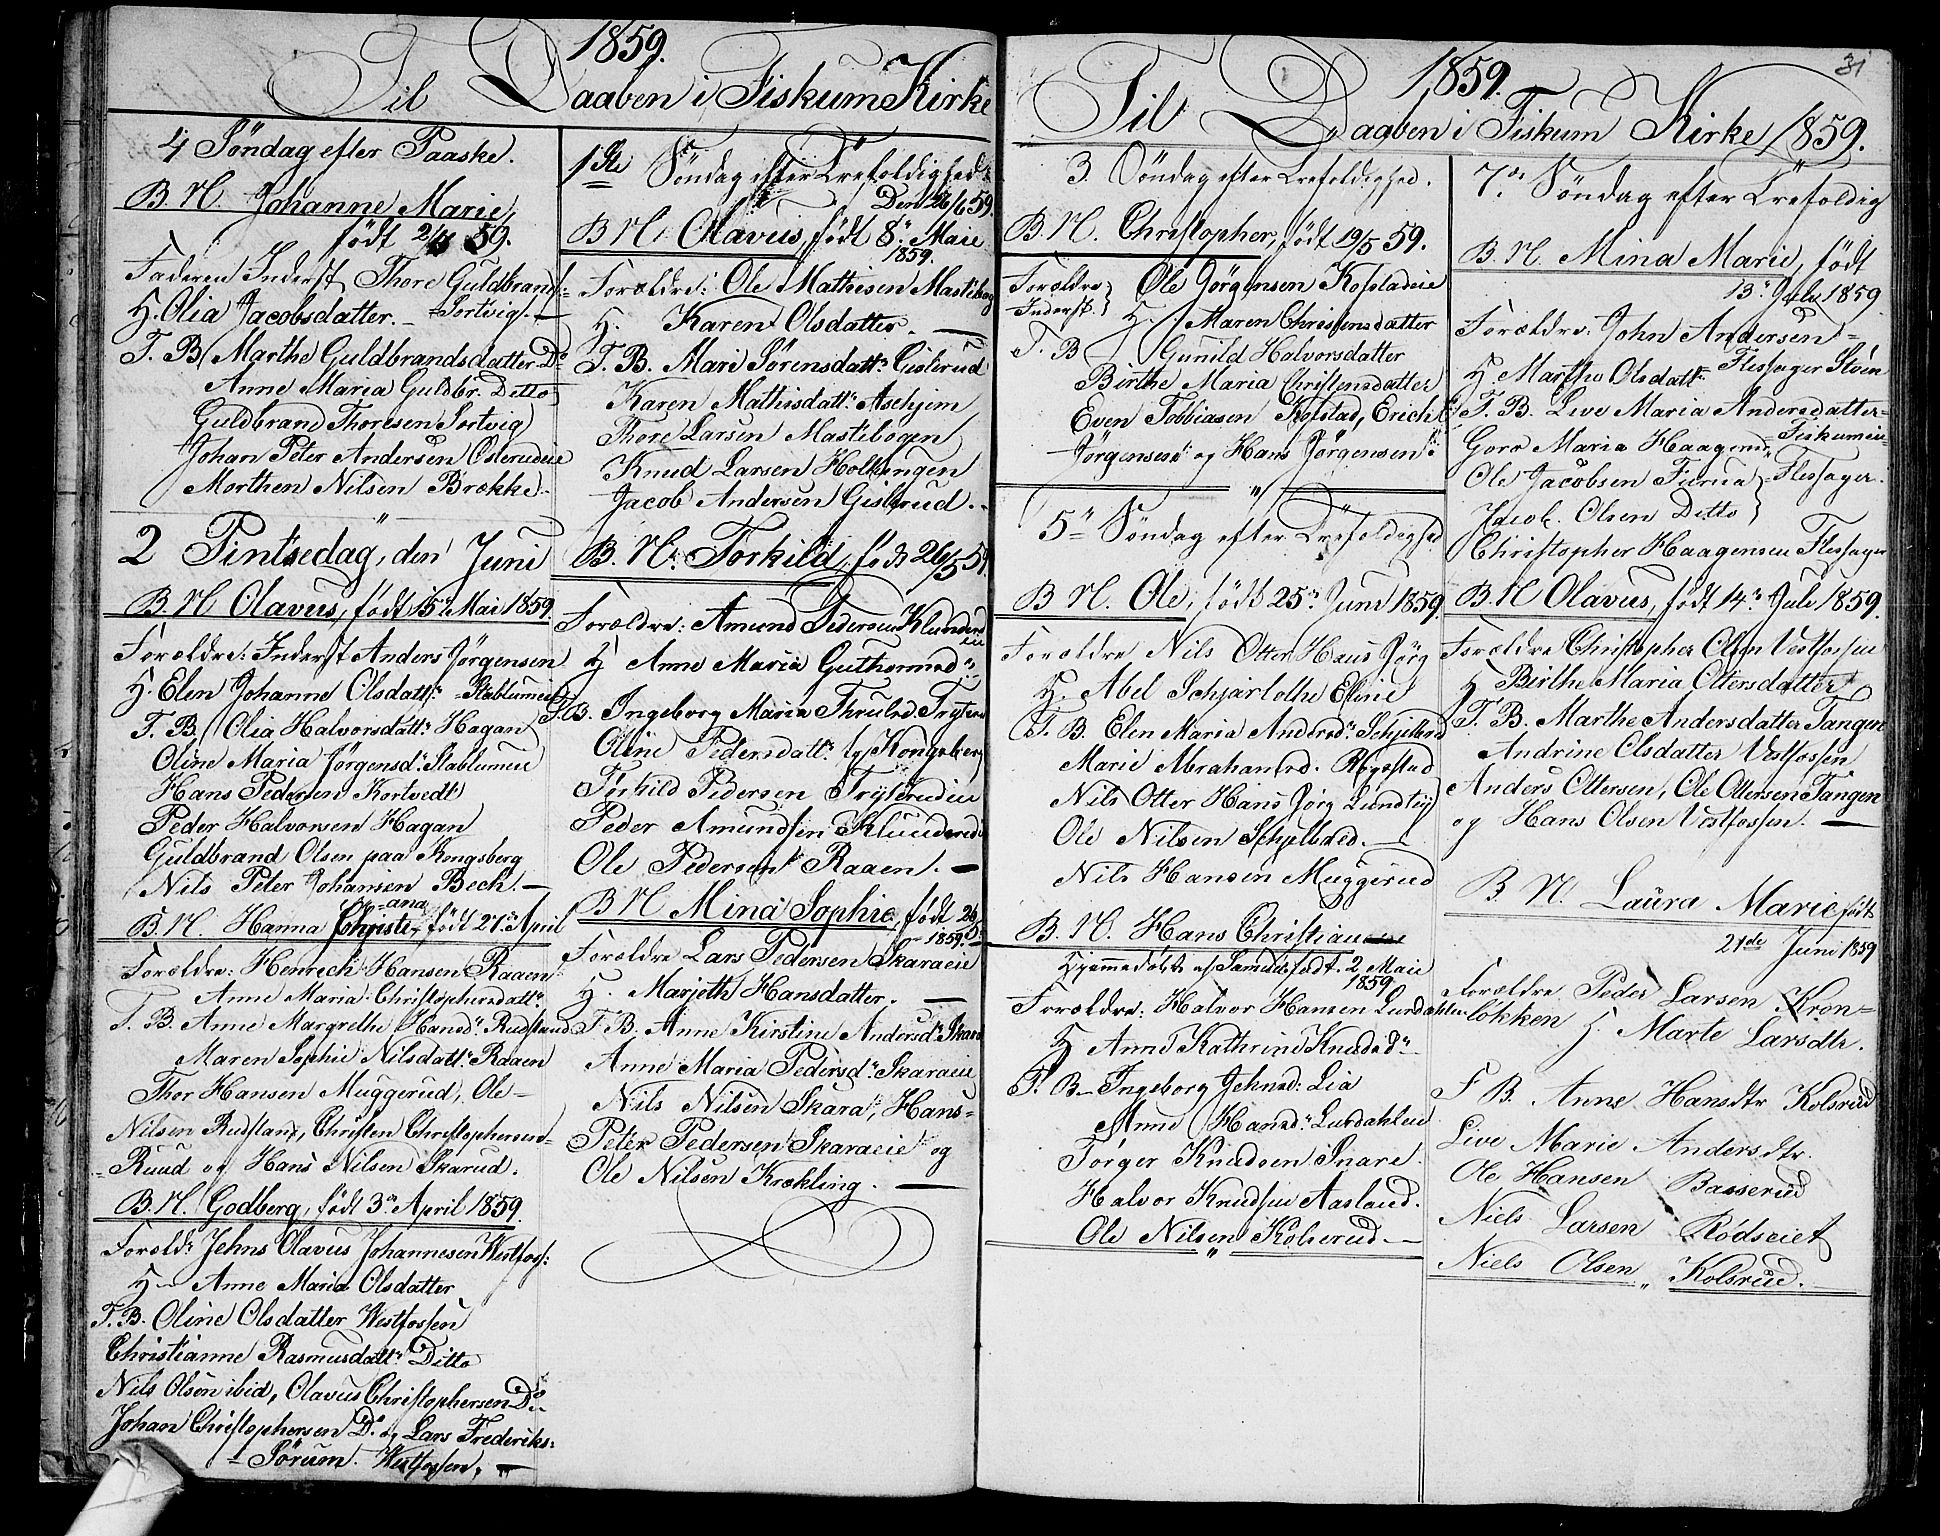 1859.
Til Daaben i Fiskum Kirke
4 Søndag efter Paaske.
B. N. Johanne Marie,
født 2/3 59.
Faderen Inderst Thore Guldbrand-
H. Olia Jacobsdatter. - Sortvig. -
F. B. Marthe Guldbrandsdatter Do
Anne Maria Guldbr. Ditto
Guldbrand Thoresen Sortvig
Johan Peter Andersen Østerudeie
Morthen Nilsen Brække.
2 Pintsedag, den Juni
B. N. Olavus, født 15de Mai 1859.
Forældre: Inderst Anders Jørgensen
H. Elen Johanne Olsdattr. Stablumeie
F. B. Olia Halvorsdattr. Hagan
Oline Maria Jørgensdr. Stablumeie
Hans Pedersen Kortvedt
Peder Halvorsen Hagan
Guldbrand Olsen paa Kongsberg
Nils Peter Johansen Bech. -
B. N. Hanna Christiana, født 27de April
Forældre: Henrech Hansen Raaen
Anne Maria Christophersdattr.
F. B. Anne Margrethe Hansdr. Rudstand
Maren Sophie Nilsdattr. Raaen
Thor Hansen Muggerud, Ole
Nilsen Rudstand, Christen Christophersen
Ruud og Hans Nilsen Skarud.
B. N. Godberg, født 3de April 1859.
Foreld: Jehns Olavus Johannesen Westfoss:
H. Anne Maria Olsdatter
F. B. Oline Olsdatter Westfossen
Christianne Rasmusdattr. Ditto
Nils Olsen ibid, Olavus Christophersen Do.
Johan Christophersen Do. og Lars Frederiks:
- Sørum. Westfossen, -
1ste Søndag efter Trefoldighed:
Den 26/6 59.
B. N. Olavus, født 8de Maie
1859.
Forældre: Ole Mathisen Mastebog
H. Karen Olsdatter. -
F. B. Mari Sørensdattr. Gislerud
Karen Mathisdattr. Aschjem
Thore Larsen Mastebogen
Knud Larsen Holtungen
Jacob Andersen Gislerud. -
B. N. Torkild, født 26/5 59.
Forældre: Amund Pedersen Klunderud
eie
H Anne Maria Guthormsdr.
F. B. Ingeborg Maria Thrulsd. Tryterud
Oline Pedersdattr. by Kongsberg
Torkild Pedersen Tryterudeie
Peder Amundsen Klunderud
Ole Pedersen Raaen. -
B. N. Mina Sophie, født 26/5
1859.
Forældre Lars Pedersen Skaraeie
H. Marjeth Hansdatter. -
F. B. Anne Kirstine Andersdr. Skara
Anne Maria Pedersdr. Skaraeie
Nils Nilsen Skara, Hans-
Peter Pedersen Skaraeie og
Ole Nilsen Krækling. -
31
1859.
Til Daaben i Fiskum Kirke 1859.
3. Søndag efter Trefoldighed.
B. N. Christopher, født 19/5 59.
Forældre Ole Jørgensen Kolstadeie
Inderst H. Maren Christensdatter
F. B. Gunild Halvorsdatter
Birthe Maria Christensdatter
Even Tobbiasen Kolstad, Erich
Jørgensen og Hans Jørgensen
5te Søndag efter Trefoldighed
B. N. Ole, født 25de Juni 1859.
Forældre Nils Otter Hans Jørg
H. Abel Schjarlothe Eline
F. B. Elen Maria Andersdr. Schjelbred
Marie Abrahamsd. Røgestad
Nils Otter Hans Jørg Lundteig
Ole Nilsen Schjelbred. -
Nils Hansen Muggerud
B. N. Hans Christian
Hjemmedøbt af Samuels født. 2 Maie
1859.
Forældre: Halvor Hansen Lurdahlen
H Anne Kathrine Knudsdr.
F. B. Ingeborg Jehnsd: Lia
Anne Hansdr. Lurdahlen
Torger Knudsen Snare.
Halvor Knudsen Aasland.
Ole Nilsen Kolserud. -
7de Søndag efter Trefoldig
B. N. Mina Marie, født
13de Juli 1859
Forældre: John Andersen
H. Marthe Olsdattr. Flesager Støen
F. B. Live Maria Andersdatter
Goro Maria Haagensd. Fiskumeie
Ole Jacobsen Furua Flesager.
Jacob Olsen Ditto
Christopher Haagensen Flesager
B. N. Olavus, født 14de Juli 1859.
Forældre Christopher Olsen Vestfossen
H Birthe Maria Ottersdatter
F. B. Marthe Andersdatter Tangen
Andrine Olsdatter Vestfossen
Anders Ottersen, Ole Ottersen Tangen
og Hans Olsen Vestfossen. -
B. N. Laura Marie født
21de Juni 1859
Forældre Peder Larsen Kron-
løkken H. Marte Larsdtr.
F B. Anne Hansdtr Kolsrud
Live Marie Andersdtr.
Ole Hansen Basserud
Niels Larsen Rødseiet
Niels Olsen Kolsrud.